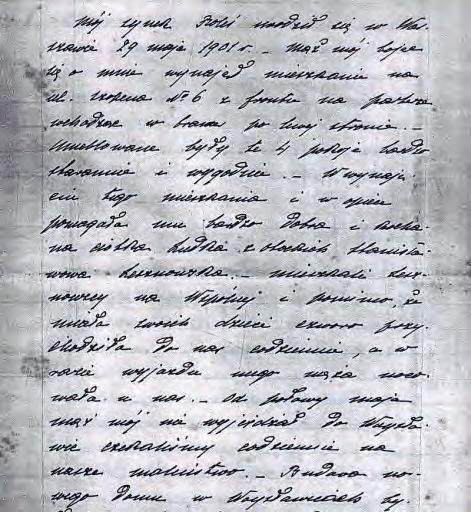 Mój synek Foluś urodził się w War-
szawie 29 maja 1901 r. – Mąż mój bojąc
się o mnie wynajął mieszkanie na
ul. Szopena № 6 z frontu na parterze
wchodząc w bramę po lewej stronie. –
Umeblowane były te 4 pokoje bardzo
starannie i wygodnie. – W wynaję-
ciu tego mieszkania i w opiece
pomagała mu bardzo dobra i kocha-
na ciotka Ludka z Stanisła-
wowa – mieszkali
na Wspólnej i pomimo, że
miała swoich dzieci czworo przy-
chodziła do nas codziennie, a w
razie wyjazdu mego męża noco-
wała u nas. – Od połowy maja
mąż mój nie wyjeżdżał do Wojsła-
wic czekaliśmy codziennie na
nasze maleństwo. – Budowa no-
wego domu w Wojsławicach by-